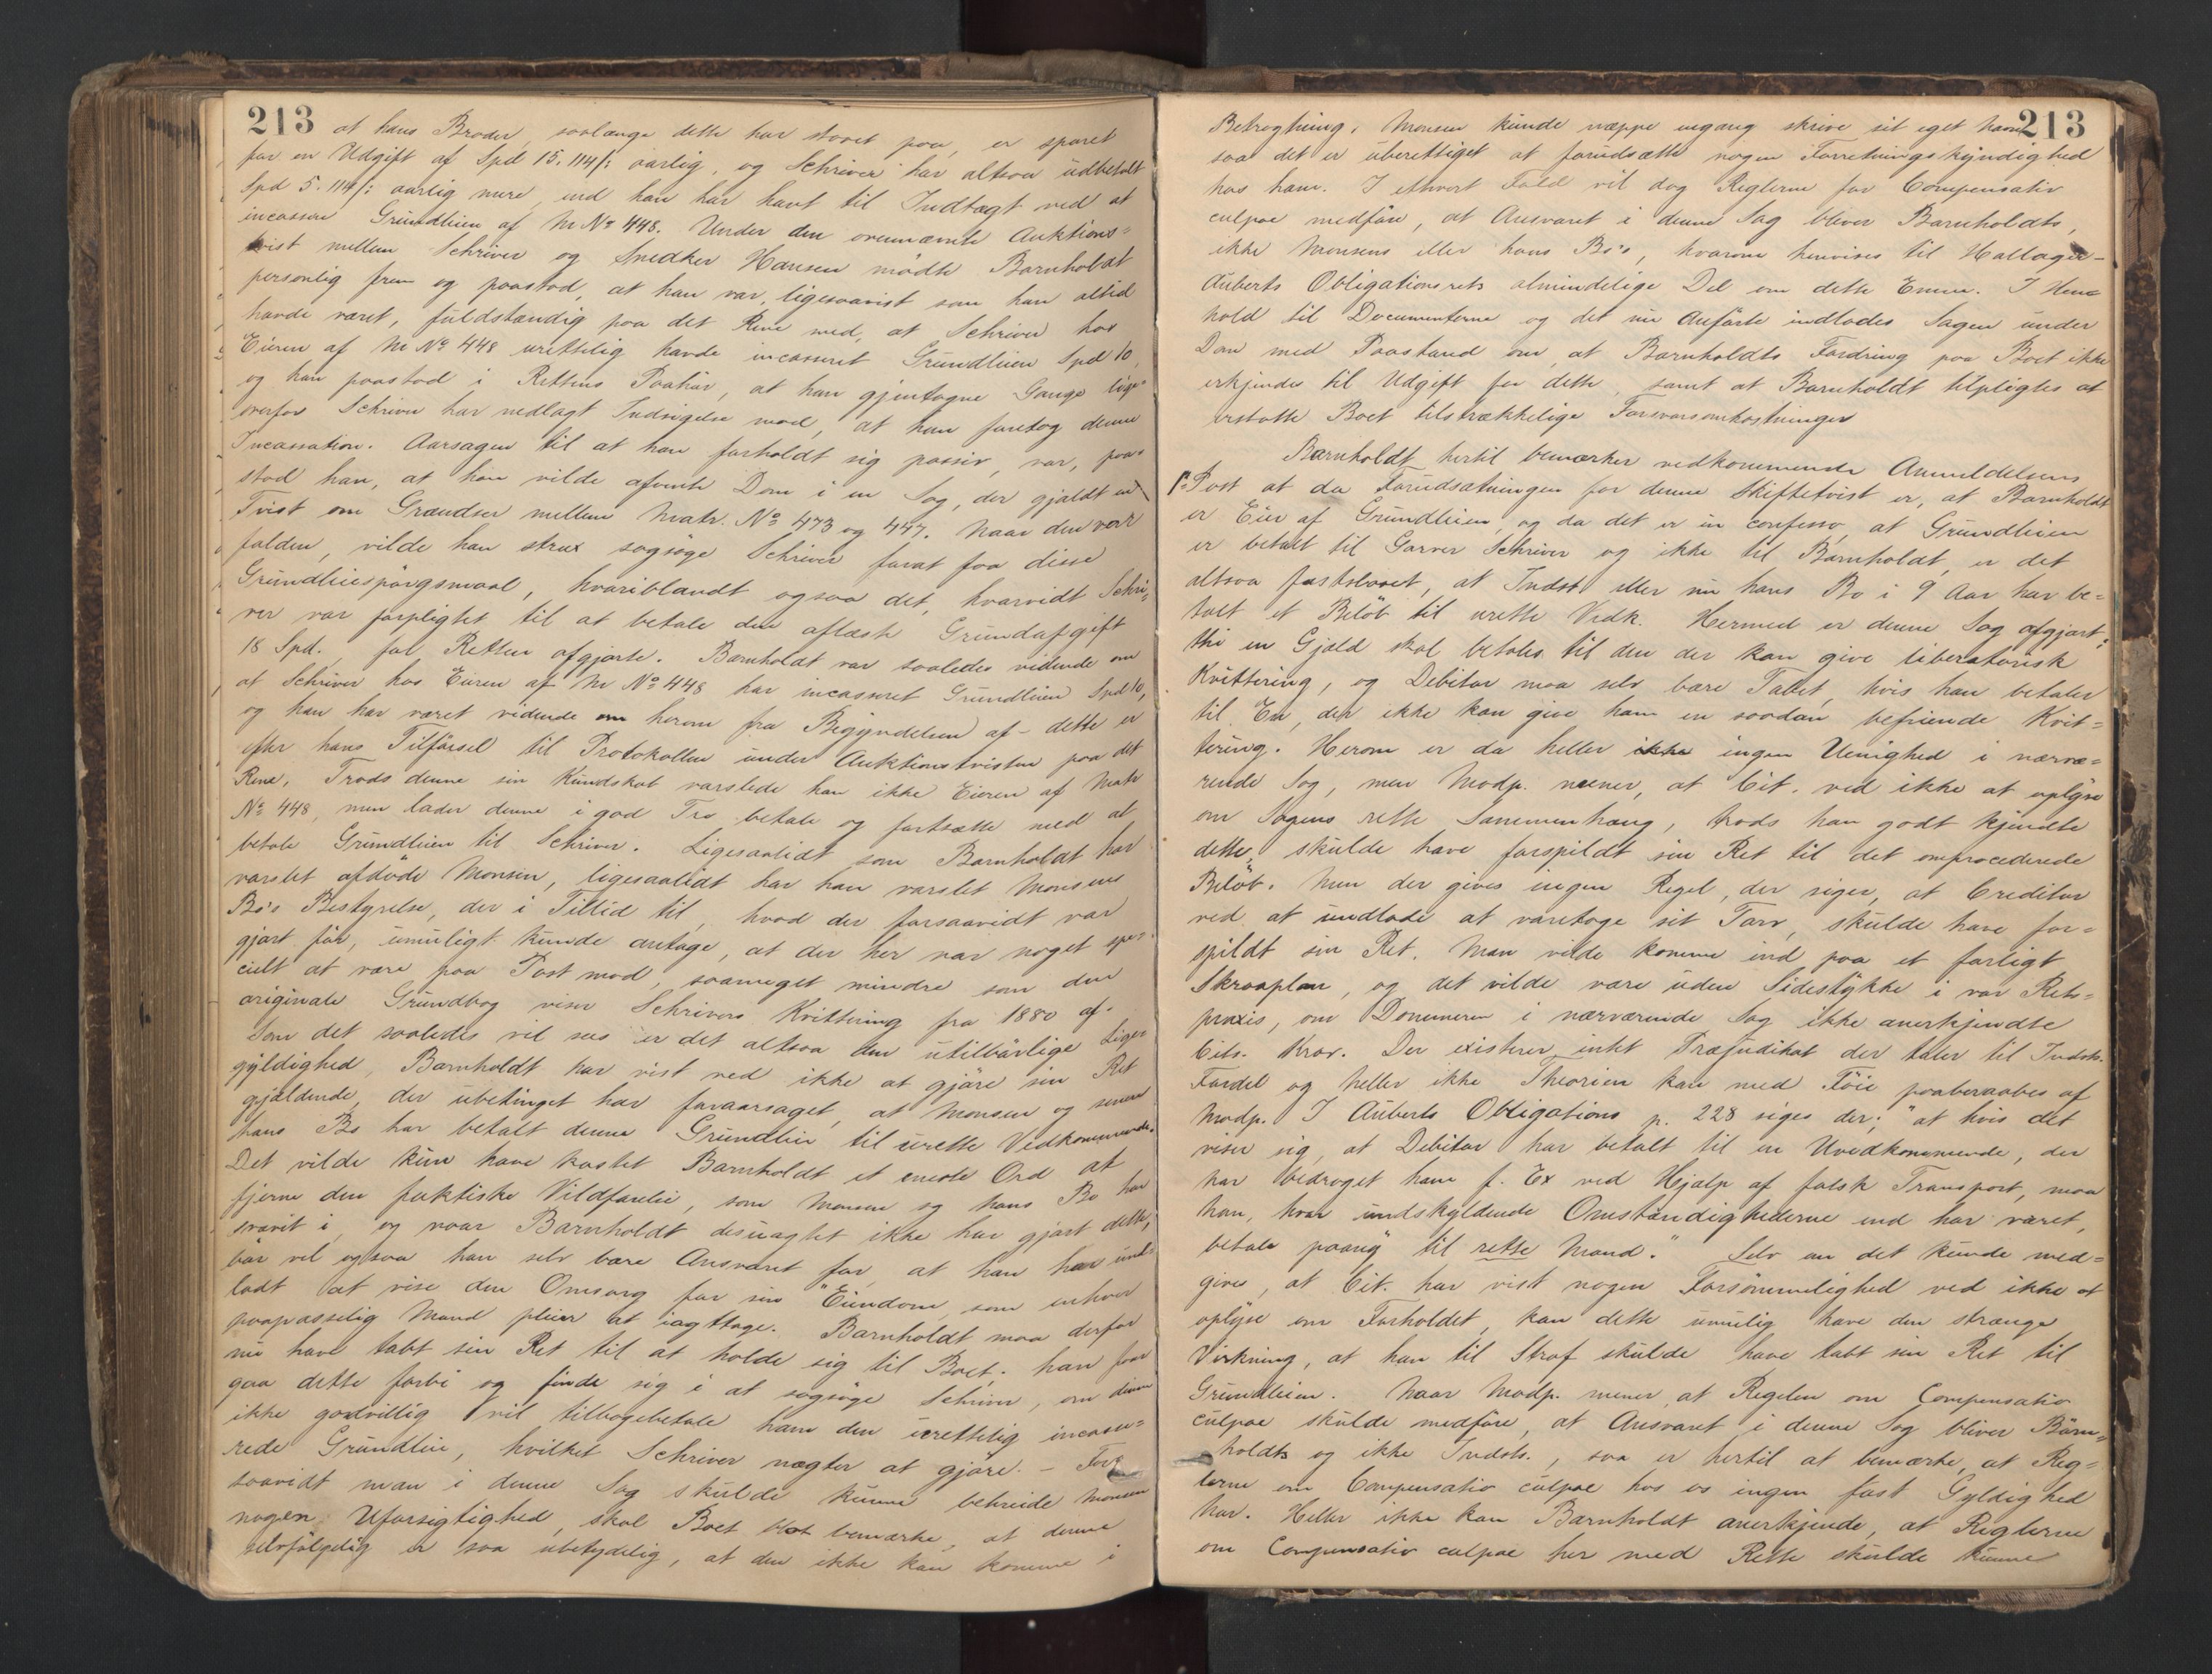 213
at hans Broder, saalænge dette har staaet paa, er sparet
for en Udgift af Spd 15. 114/: aarlig, og Schriver har altsaa udbetalt
Spd 5. 114/: aarlig mere, end han har havt til Indtægt ved at
incassere Grundleien af M No 448. Under den ovennævnte Auktions=
tvist mellem Schriver og Snedker Hansen mødte Barnholdt
personlig frem og paastod, at han var, ligesaavist som han altid
havde været, fuldstændig paa det Rene med, at Schriver hos
Eieren af M No 448 urettelig havde incasseret Grundleien Spd 10,
og han paastod i Rettens Paahør, at han gjentagne Gange lige=
overfor Schriver har nedlagt Indsigelse mod, at han foretog denne
Incassation. Aarsagen til at han forholdt sig passiv, var, paa=
stod han, at han vilde afvente Dom i en Sag, der gjaldt en
Tvist om Grændser mellem Matr. No 473 og 447. Naar den var
falden, vilde han strax sagsøge Schriver forat faa disse
Grundleiespørgsmaal, hvoriblandt ogsaa det, hvorvidt Schri=
ver var forpligtet til at betale den aflæste Grundafgift
18 Spd., for Retten afgjorte. Barnholdt var saaledes vidende om
at Schriver hos Eieren af M No 448 har incasseret Grundleien Spd 10,
og han har været vidende om herom fra Begyndelsen af - dette er
efter hans Tilførsel til Protokollen under Auktionstvisten paa det
Rene. Trods denne sin Kundskab varslede han ikke Eieren af Matr
No 448, men lader denne i god Tro betale og fortsætte med at
betale Grundleien til Schriver. Ligesaalidt som Barnholdt har
varslet afdøde Monsen, ligesaalidt har han varslet Monsens
Bo's Bestyrelse, der i Tillid til, hvad der forsaavidt var
gjort før, umuligt kunde antage, at der her var noget spe=
cielt at være paa Post mod, saameget mindre som den
originale Grundbog viser Schrivers Kvittering fra 1880 af.
Som det saaledes vil sees er det altsaa den utilbørlige Lige=
gyldighed, Barnholdt har vist ved ikke at gjøre sin Ret
gjældende, der ubetinget har foraarsaget, at Monsen og senere
hans Bo har betalt denne Grundleie til urette Vedkommende.
Det vilde kun have kostet Barnholdt et eneste Ord at
fjerne den faktiske Vildfarelse, som Monsen og hans Bo har
svævet i, og naar Barnholdt desuagtet ikke har gjort dette,
bør vel ogsaa han selv bære Ansvaret for, at han har und=
ladt at vise den Omsorg for sin Eiendom, som enhver
paapasselig Mand pleier at iagttage. Barnholdt maa derfor
nu have tabt sin Ret til at holde sig til Boet; han faar
gaa dette forbi og finde sig i at sagsøge Schriver, om denne
ikke godvillig vil tilbagebetale ham den urettelig incasse=
rede Grundleie, hvilket Schriver nægter at gjøre. - For
saavidt man i denne Sag skulde kunne bebreide Monsen
nogen Uforsigtighed, skal Boet blot bemærke, at denne
selvfølgelig er saa ubetydelig, at den ikke kan komme i
213
Betragtning. Monsen kunde næppe engang skrive sit eget Navn
saa det er uberettiget at forudsætte nogen Forretningskyndighed
hos ham. I ethvert Fald vil dog Reglerne for Compensativ
culpae medføre, at Ansvaret i denne Sag bliver Barnholdts,
ikke Monsens eller hans Bo's, hvorom henvises til Hallager-
Auberts Obligationsrets almindelige Del om dette Emne. I Hen=
hold til Documenterne og det nu Anførte indlades Sagen under
Dom med Paastand om, at Barnholdts Fordring paa Boet ikke
erkjendes til Udgift for dette, samt at Barnholdt tilpligtes at
erstatte Boet tilstrækkelige Forsvarsomkostninger
Barnholdt hertil bemærker vedkommende Anmeldelsens
1ste Post at da Forudsætningen for denne Skiftetvist er, at Barnholdt
er Eier af Grundleien, og da det er in confesso, at Grundleien
er betalt til Garver Schriver og ikke til Barnholdt, er det
altsaa fastslaaet, at Indst. eller nu hans Bo i 9 Aar har be=
talt et Beløb til urette Vedk. Hermed er denne Sag afgjort;
thi en Gjæld skal betales til den der kan give liberatorisk
Kvittering, og Debitor maa selv bære Tabet, hvis han betaler
til En, der ikke kan give ham en saadan befriende Kvit=
tering. Herom er da heller ikke ingen Uenighed i nærvæ=
rende Sag, men Modp. mener, at Cit. ved ikke at oplyse
om Sagens rette Sammenhæng, trods han godt kjendte
dette, skulde have forspildt sin Ret til det omprocederede
Beløb. Men der gives ingen Regel, der siger, at Creditor
ved at undlade at varetage sit Tarv, skulde have for=
spildt sin Ret. Man vilde komme ind paa et farligt
Skraaplan, og det vilde være uden Sidestykke i vor Rets=
praxis, om Dommeren i nærværende Sag ikke anerkjendte
Cits. Krav. Der existerer intet Præjudikat der taler til Indsts.
Fordel og heller ikke Theorien kan med Føie paaberaabes af
Modp. I Auberts Obligations p. 228 siges der; "at hvis det
viser sig, at Debitor har betalt til en Uvedkommende, der
har bedraget ham f. Ex ved Hjælp af falsk Transport, maa
han, hvor undskyldende Omstændighederne end har været,
betale paany til rette Mand." Selv om det kunde med=
gives, at Cit. har vist nogen Forsømmelighed ved ikke at
oplyse om Forholdet, kan dette umulig have den strænge
Virkning, at han til Straf skulde have tabt sin Ret til
Grundleien. Naar Modp. mener, at Regelen om Compensativ
culpae skulde medføre, at Ansvaret i denne Sag bliver Barn=
holdts og ikke Indsts., saa er hertil at bemærke, at Reg=
lerne om Compensativ culpae hos os ingen fast Gyldighed
har. Heller ikke kan Barnholdt anerkjende, at Reglerne
om Compensativ culpae her med Rette skulde kunne